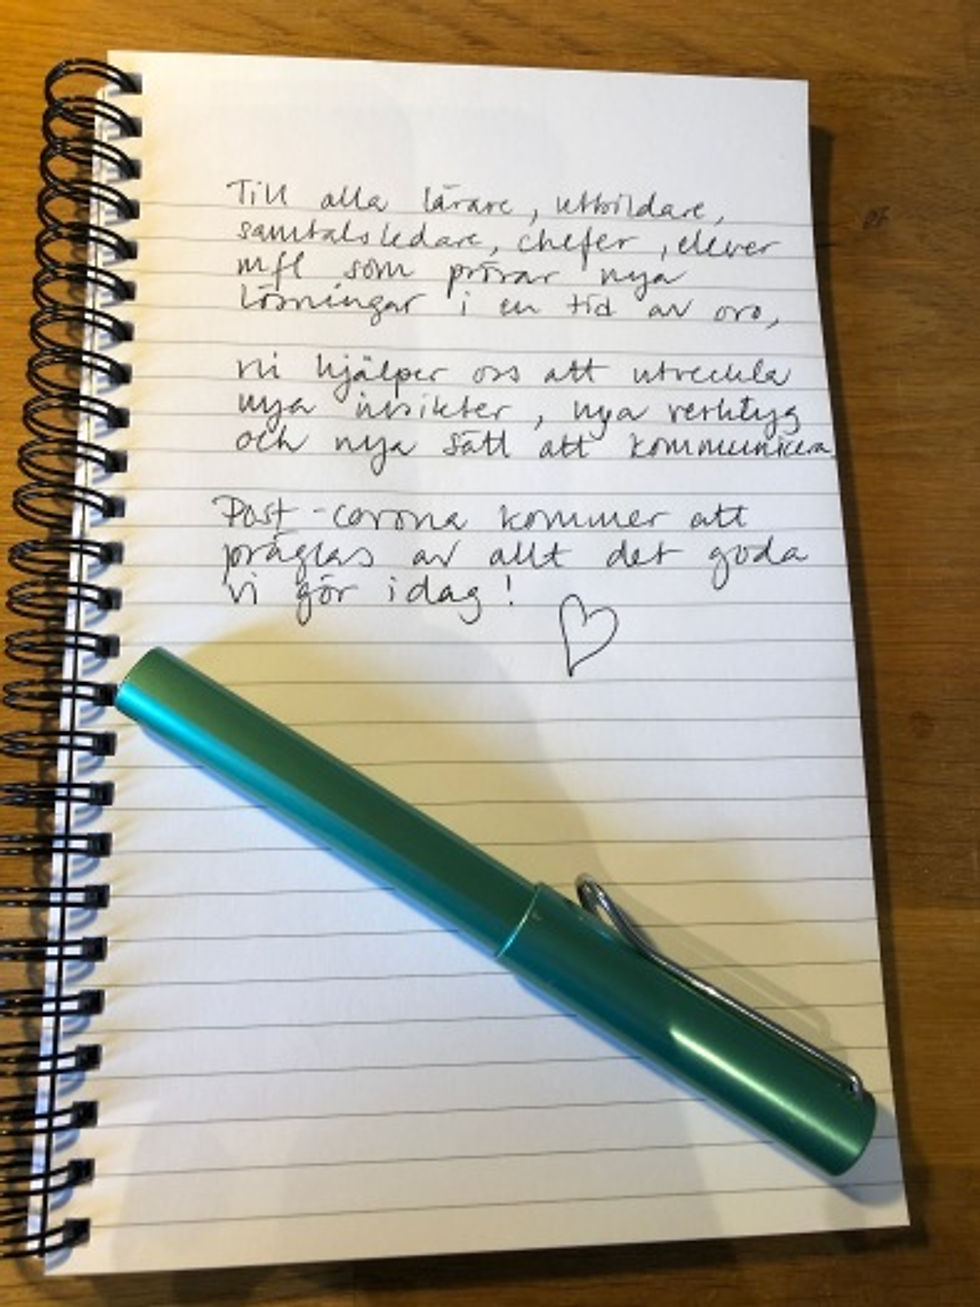 Till alla lärare, utbildare,
samtalsledare, chefer, elever
mfl som prövar nya
lösningar i en tid av oro,
ni hjälper oss att utveckla
nya insikter, nya verktyg
och nya sätt att kommunicera
Post-corona kommer att
präglas av allt det goda
vi gör idag!